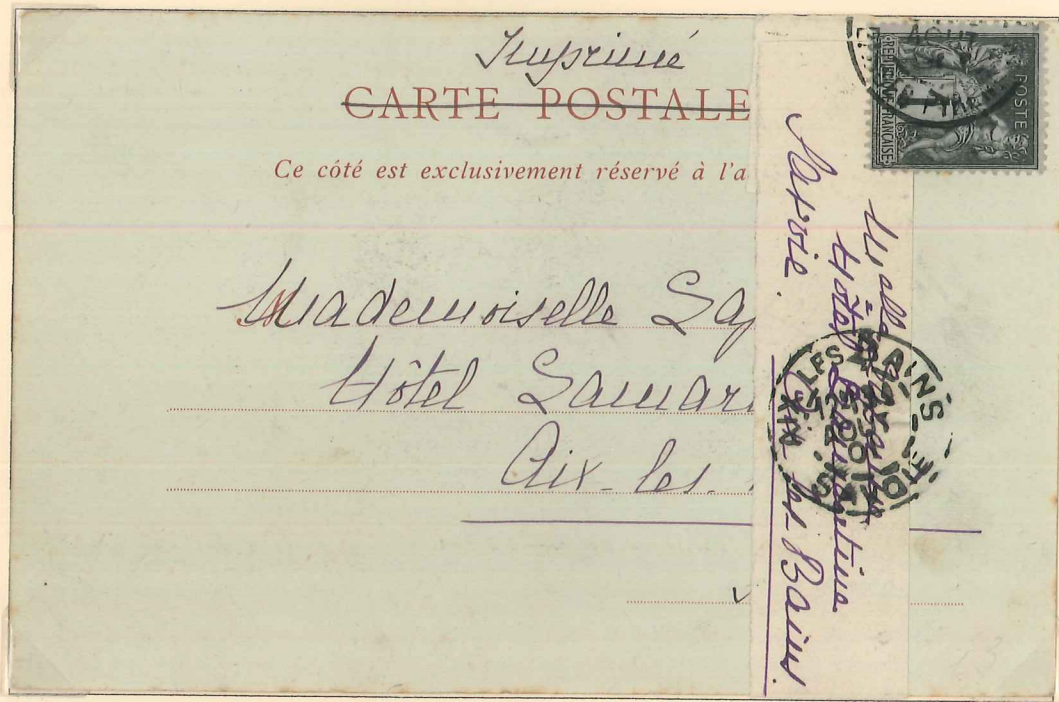 Imprimé
CARTE POSTALE
Ce côté est exclusivement réservé à l'a
Mademoiselle
Hôtel Lamar
Aix-les-
Melle
Hôtel Lamartine
Aix les-Bains
Savoie
REPUBLIQUE FRANÇAISE
POSTE
1
AOUT
AIX-LES-BAINS
SAVOIE